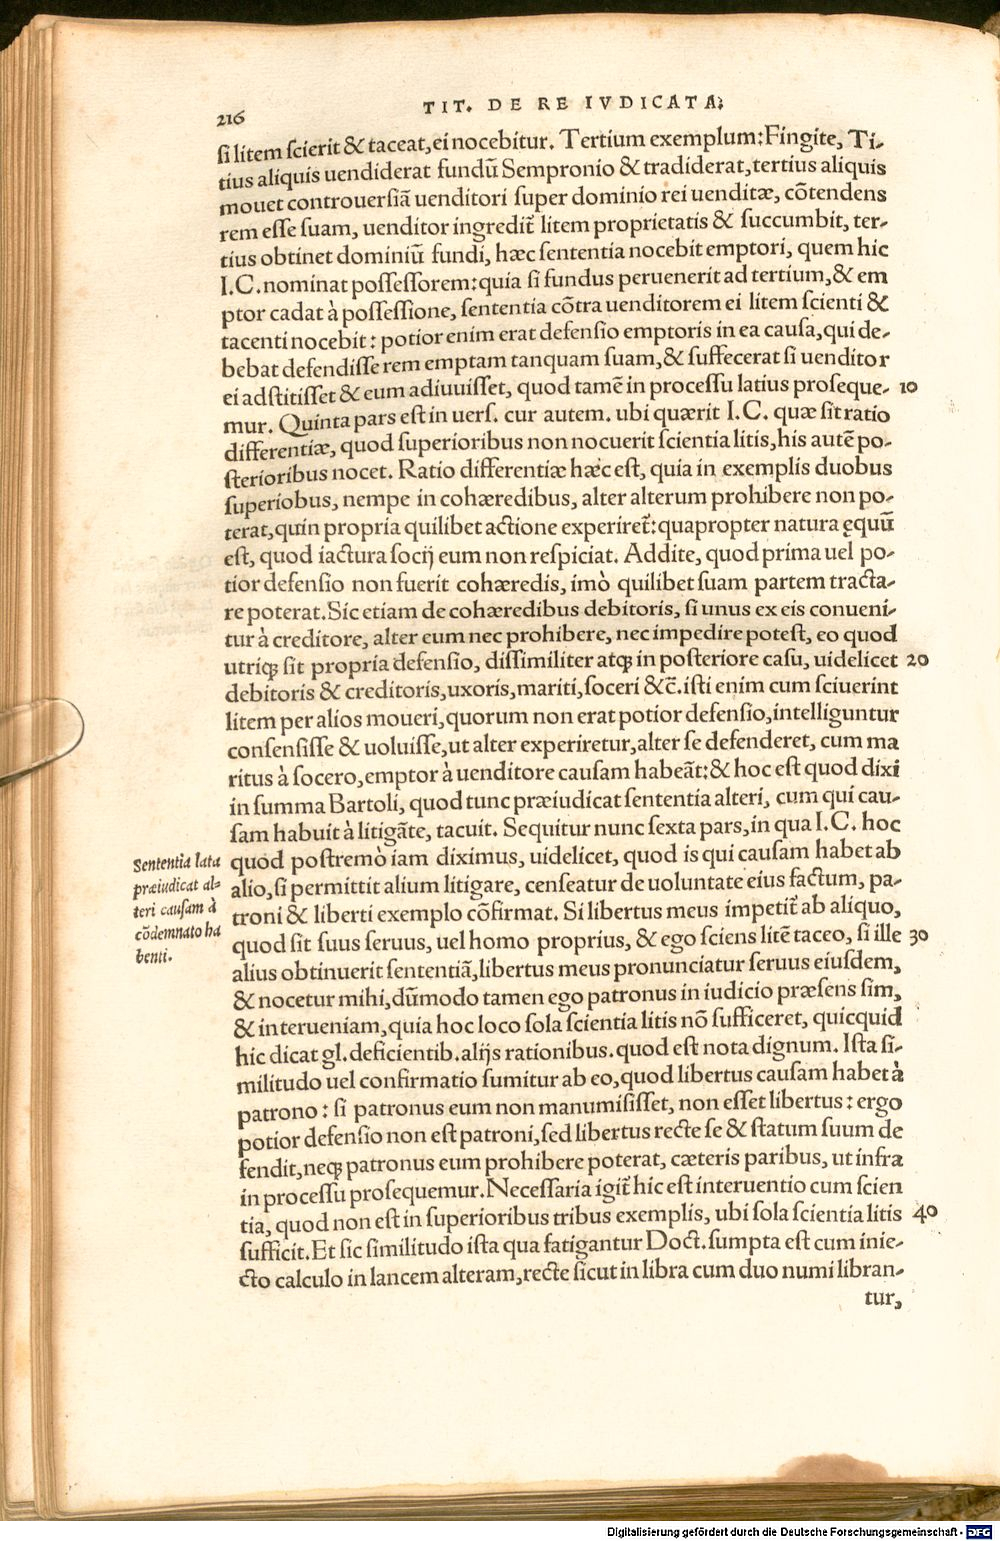 216
TIT. DE RE IVDICATA;
si litem scierit & taceat, ei nocebitur. Tertium exemplum: Fingite, Ti-
tius aliquis uendiderat fundū Sempronio & tradiderat, tertius aliquis
mouet controuersiā uenditori super dominio rei uenditæ, cōtendens
rem esse suam, uenditor ingredit̃ litem proprietatis & succumbit, ter-
tius obtinet dominiū fundi, hæc sententia nocebit emptori, quem hic
I.C. nominat possessorem: quia si fundus peruenerit ad tertium, & em
ptor cadat à possessione, sententia cōtra uenditorem ei litem scienti &
tacenti nocebit: potior enim erat defensio emptoris in ea causa, qui de-
bebat defendisse rem emptam tanquam suam, & suffecerat si uenditor
ei adstitisset & eum adiuuisset, quod tamē in processu latius proseque- 10
mur. Quinta pars est in uers. cur autem. ubi quærit I.C. quæ sit ratio
differentiæ, quod superioribus non nocuerit scientia litis, his autē po-
sterioribus nocet. Ratio differentiæ hæc est, quia in exemplis duobus
superiobus, nempe in cohæredibus, alter alterum prohibere non po-
terat, quin propria quilibet actione experiret̃: quapropter natura ęquū
est, quod iactura socij eum non respiciat. Addite, quod prima uel po-
tior defensio non fuerit cohæredis, imò quilibet suam partem tracta-
re poterat. Sic etiam de cohæredibus debitoris, si unus ex eis conueni-
tur à creditore, alter eum nec prohibere, nec impedire potest, eo quod
utriqꝫ sit propria defensio, dissimiliter atqꝫ in posteriore casu, uidelicet 20
debitoris & creditoris, uxoris, mariti, soceri &c̄. isti enim cum sciuerint
litem per alios moueri, quorum non erat potior defensio, intelliguntur
consensisse & uoluisse, ut alter experiretur, alter se defenderet, cum ma
ritus à socero, emptor à uenditore causam habeāt: & hoc est quod dixi
in summa Bartoli, quod tunc præiudicat sententia alteri, cum qui cau-
sam habuit à litigāte, tacuit. Sequitur nunc sexta pars, in qua I.C. hoc
quod postremò iam diximus, uidelicet, quod is qui causam habet ab
alio, si permittit alium litigare, censeatur de uoluntate eius factum, pa-
troni & liberti exemplo cōfirmat. Si libertus meus impetit̃ ab aliquo,
quod sit suus seruus, uel homo proprius, & ego sciens litē taceo, si ille 30
alius obtinuerit sententiā, libertus meus pronunciatur seruus eiusdem,
& nocetur mihi, dūmodo tamen ego patronus in iudicio præsens sim,
& interueniam, quia hoc loco sola scientia litis nō sufficeret, quicquid
hic dicat gl. deficientib. alijs rationibus. quod est nota dignum. Ista si-
militudo uel confirmatio sumitur ab eo, quod libertus causam habet à
patrono: si patronus eum non manumisisset, non esset libertus: ergo
potior defensio non est patroni, sed libertus recte se & statum suum de
fendit, neqꝫ patronus eum prohibere poterat, cæteris paribus, ut infra
in processu prosequemur. Necessaria igit̃ hic est interuentio cum scien
tia, quod non est in superioribus tribus exemplis, ubi sola scientia litis 40
sufficit. Et sic similitudo ista qua fatigantur Doct. sumpta est cum inie-
cto calculo in lancem alteram, recte sicut in libra cum duo numi libran-
tur,
Sententia lata
præiudicat al-
teri causam à
cōdemnato ha
benti.
Digitalisierung gefördert durch die Deutsche Forschungsgemeinschaft - DFG